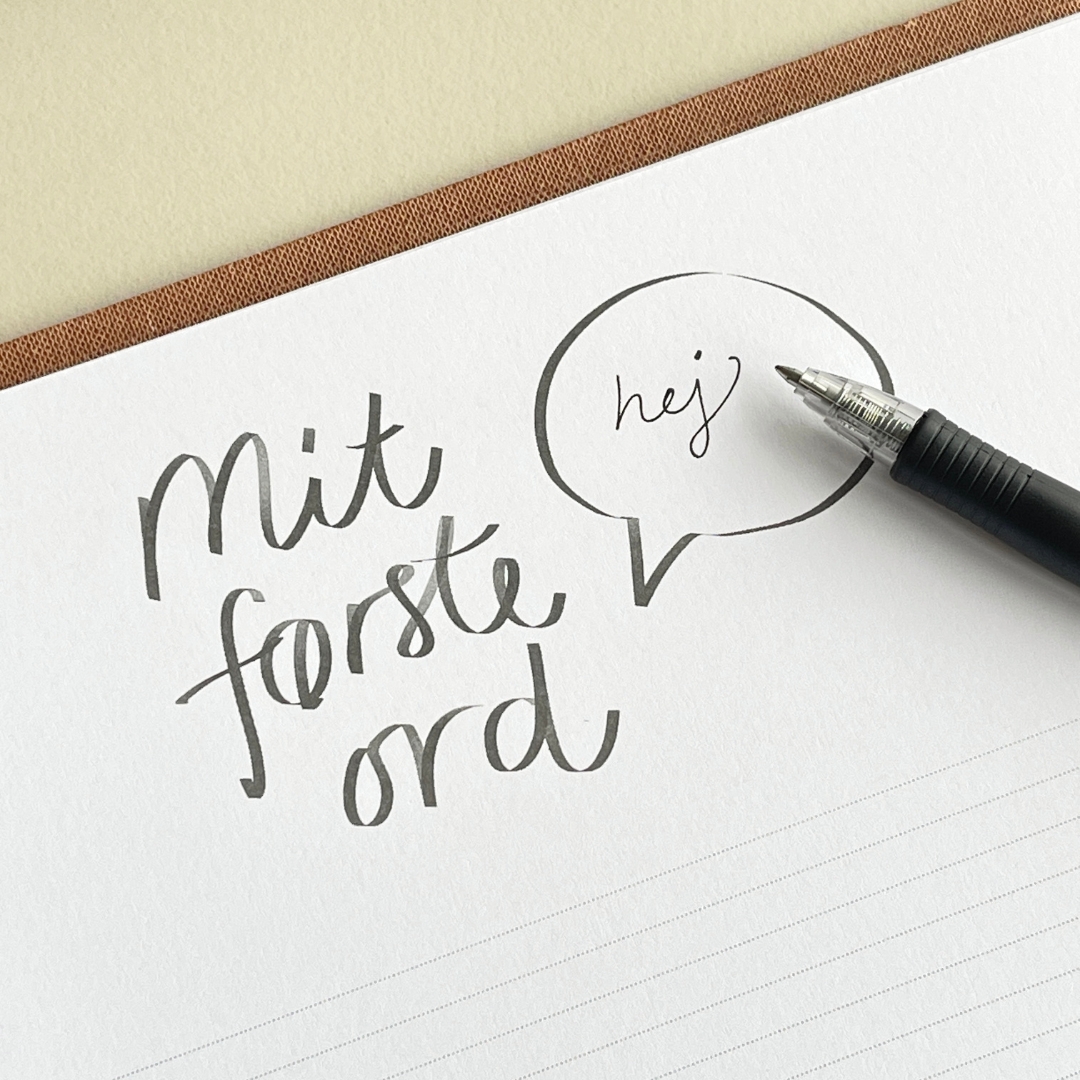 Mit
første
ord
hej